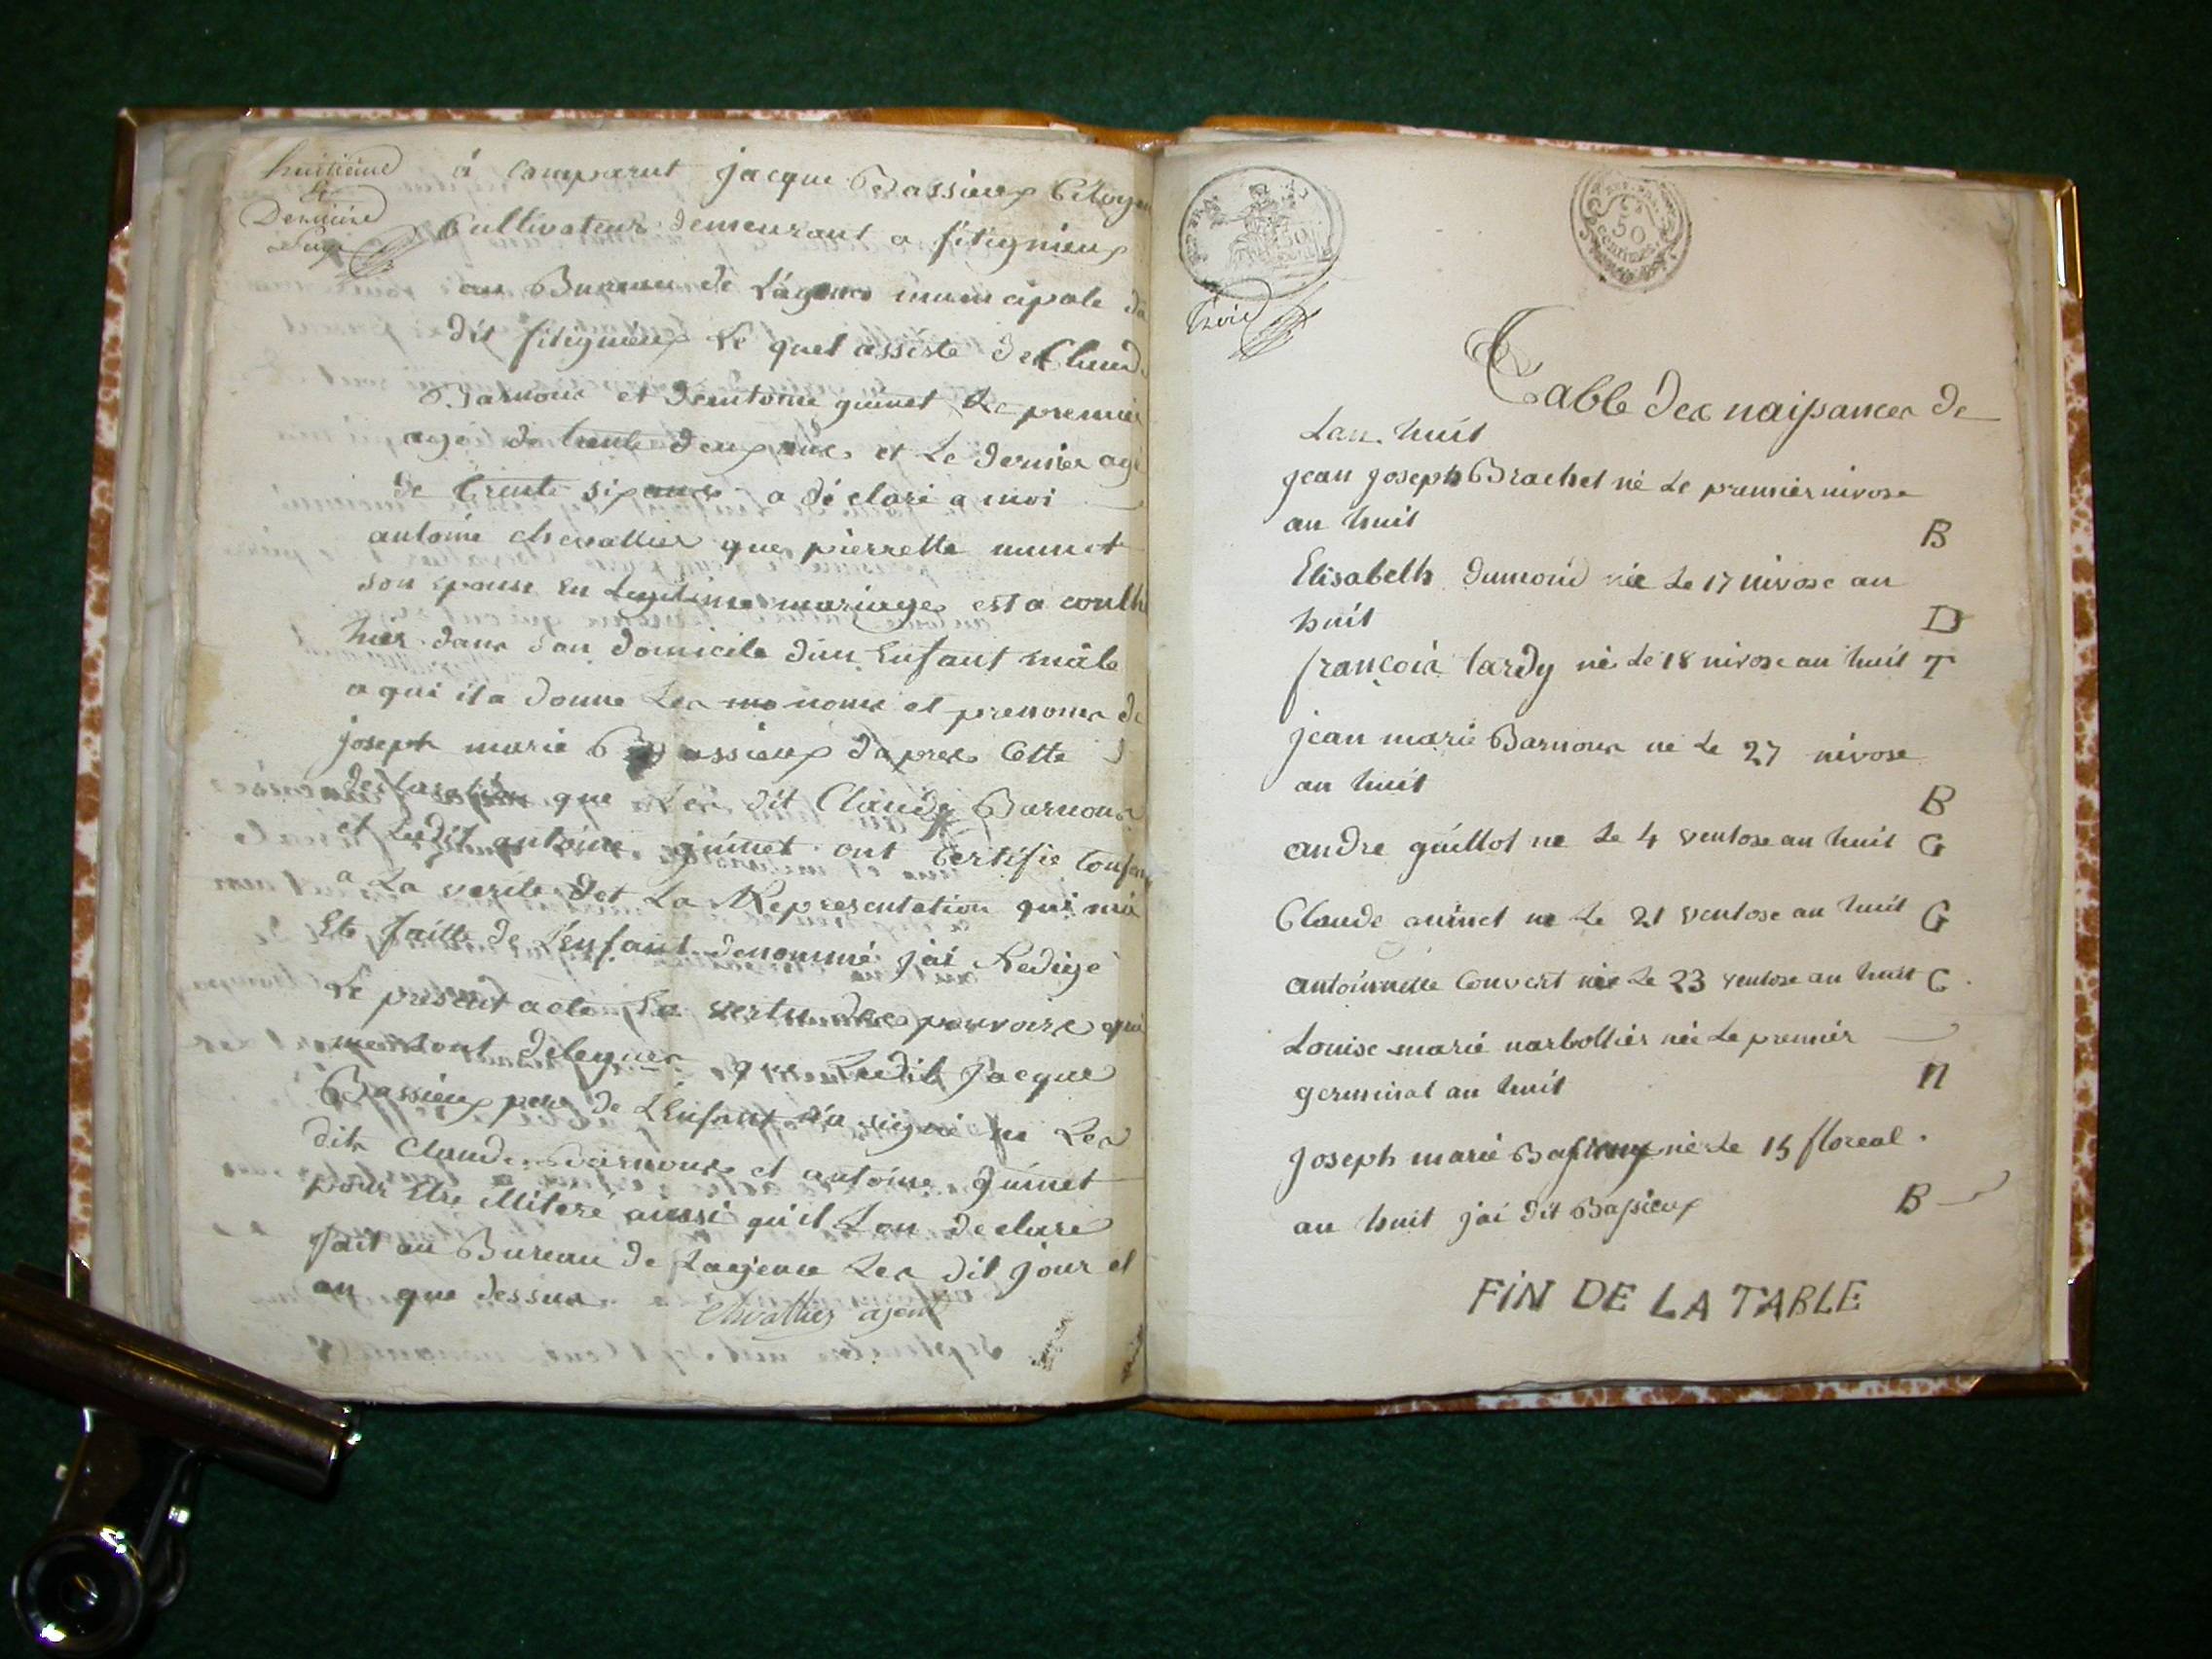 huitième
et
Dernière
page
à comparut jacque Bassieux Citoyen
Cultivateur demeurant a fitignieux
au Bureau de L'agence municipale du
dit fitignieux Le quel assisté de Claude
Barnoux et dantoine guinet Le premier
agé de trente deux ans et Le dernier agé
de trente six ans a déclaré a moi
antoine chevallier que pierrette
son epouse En Legitime mariage est a
hier dans son domicile dun Enfant mâle
a qui il a donne Les noms et prenoms de
joseph marie Bassieux dapres Cette
declaration que Les dit Claude Barnoux
et Ledit antoine guinet ont Certifie
a La verite et La Representation qui ma
Ete faitte de l'enfant denommé jai Redigé
Le present acte En vertu des pouvoirs qui
me sont delegues que Ledit jacque
Bassieux pere de L'Enfant n'a signé ni Les
dits Claude Barnoux et antoine guinet
pour Etre illiteré ainsi qu'il Lon declaré
fait au Bureau de Lagence Les dit jour et
an que dessus
Chevallier agent
REP. FRA.
50
50
centimes
Table des naissances de
Lan huit
jean joseph Brachet né Le premier nivose
an huit B
Elisabeth dumond née Le 17 nivose an
huit D
françois tardy né Le 18 nivose an huit T
jean marie Barnoux né Le 27 nivose
an huit B
andre guillot ne Le 4 ventose an huit G
Claude guinet ne Le 21 ventose an huit G
antoinnette Convert née Le 23 ventose an huit C.
Louise marie narbollier née Le premier
germinal an huit N
Joseph marie né Le 15 floreal.
an huit jai dit Bassieux B
FIN DE LA TABLE